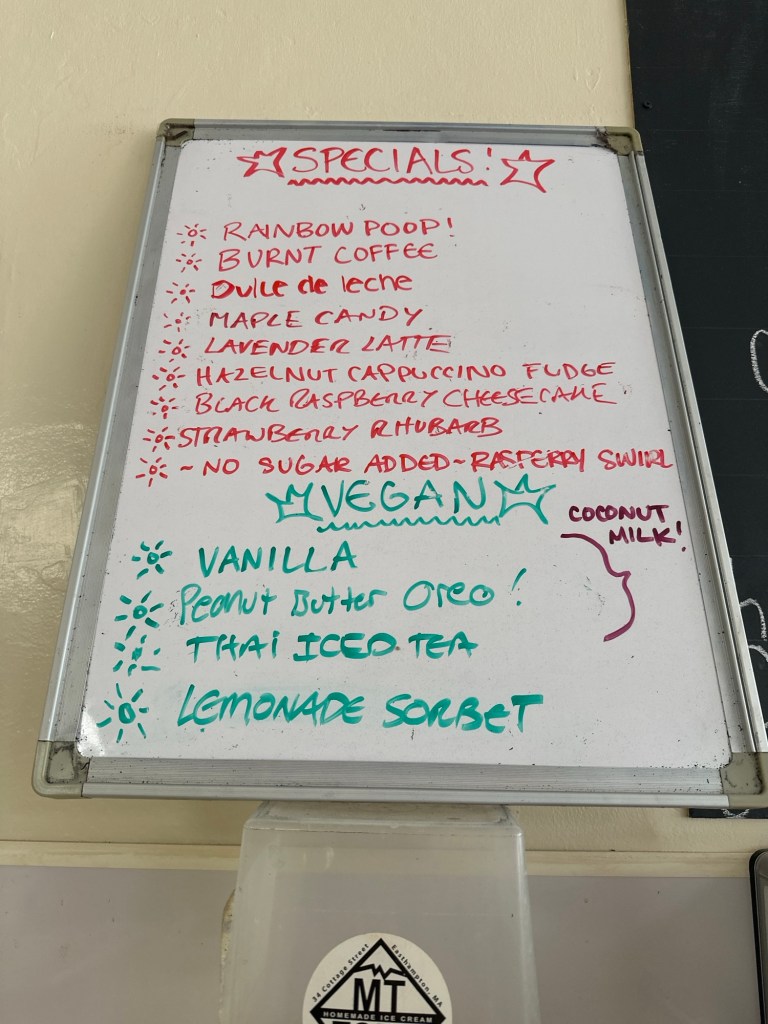 SPECIALS!
RAINBOW POOP!
BURNT COFFEE
Dulce de leche
MAPLE CANDY
LAVENDER LATTE
HAZELNUT CAPPUCCINO FUDGE
BLACK RASPBERRY CHEESECAKE
STRAWBERRY RHUBARB
~NO SUGAR ADDED~RASPERRY SWIRL
VEGAN
COCONUT
MILK!
VANILLA
Peanut Butter Oreo!
THAi ICED TEA
LEMONADE SORBET
34 Cottage Street Easthampton, MA
MT
HOMEMADE ICE CREAM